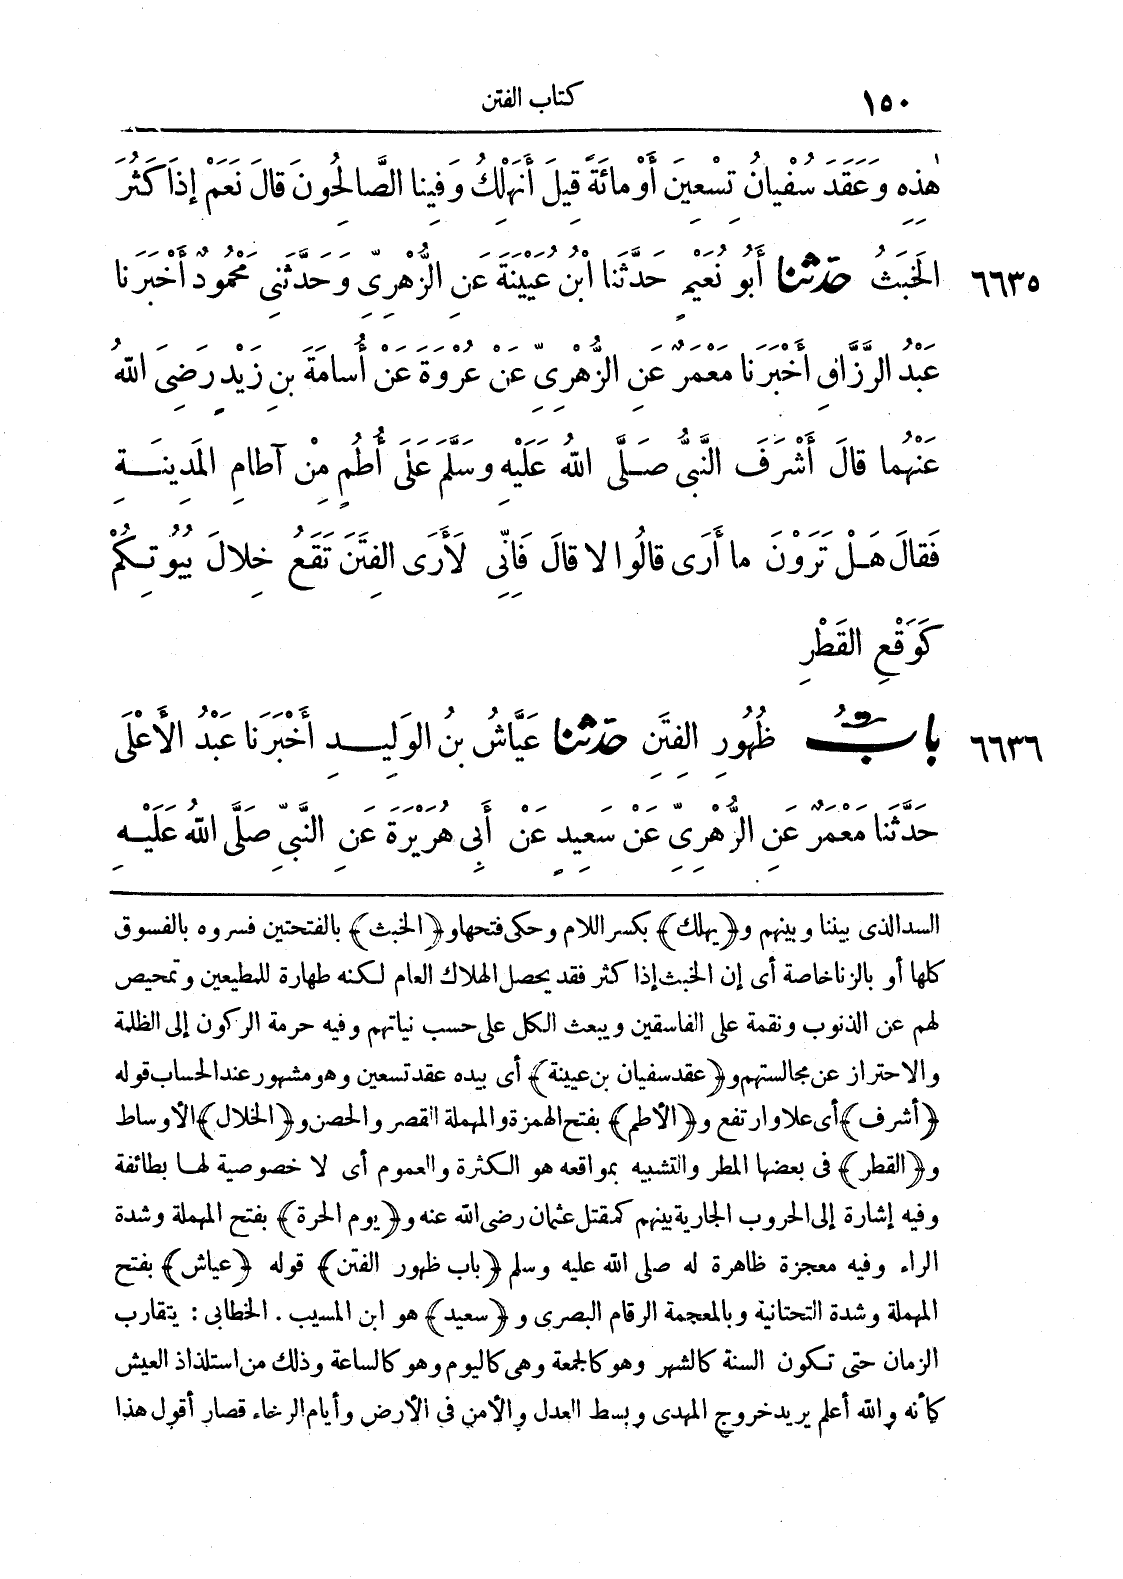 ١٥٠ كتاب الفتن
هٰذِهِ وَعَقَدَ سُفْيانُ تِسْعِينَ أَوْ مائَةً قِيلَ أَنَهْلِكُ وَفِينا الصَّالِحُونَ قالَ نَعَمْ إذَا كَثُرَ
٦٦٣٥ الخَبَثُ حَدَّثَنا أَبُو نُعَيْمٍ حَدَّثَنا ابْنُ عُيَيْنَةَ عَنِ الزُّهْرِىِّ وَحَدَّثَنِى مَحْمُودٌ أَخْبَرَنا
عَبْدُ الرَّزَّاقِ أَخْبَرَنا مَعْمَرٌ عَنِ الزُّهْرِىِّ عَنْ عُرْوَةَ عَنْ أُسامَةَ بنِ زَيْدٍ رَضِىَ اللهُ
عَنْهُما قالَ أَشْرَفَ النَّبِىُّ صَلَّى اللهُ عَلَيْهِ وَسَلَّمَ عَلَى أُطُمٍ مِنْ آطامِ المَدِينَةِ
فَقالَ هَلْ تَرَوْنَ ما أَرَى قالُوا لا قالَ فَإنِّى لَأَرَى الفِتَنَ تَقَعُ خِلالَ بُيُوتِكُمْ
كَوَقْعِ القَطْرِ
٦٦٣٦ بابُ ظُهُورِ الفِتَنِ حَدَّثَنا عَيَّاشُ بنُ الوَلِيدِ أَخْبَرَنا عَبْدُ الأَعْلَى
حَدَّثَنا مَعْمَرٌ عَنِ الزُّهْرِىِّ عَنْ سَعِيدٍ عَنْ أَبِى هُرَيْرَةَ عَنِ النَّبِىِّ صَلَّى اللهُ عَلَيْهِ
السد الذى بيننا وبينهم و﴿يهلك﴾ بكسر اللام وحكى فتحها و﴿الخبث﴾ بالفتحتين فسروه بالفسوق
كلها أو بالزنا خاصة أى إن الخبث إذا كثر فقد يحصل الهلاك العام لكنه طهارة للمطيعين وتمحيص
لهم عن الذنوب ونقمة على الفاسقين ويبعث الكل على حسب نياتهم وفيه حرمة الركون إلى الظلمة
والاحتراز عن مجالستهم و﴿عقد سفيان بن عيينة﴾ أى بيده عقد تسعين وهو مشهور عند الحساب قوله
﴿أشرف﴾ أى علا وارتفع و﴿الأطم﴾ بفتح الهمزة والمهملة القصر والحصن و﴿الخلال﴾ الأوساط
و﴿القطر﴾ فى بعضها المطر والتشبيه بمواقعه هو الكثرة والعموم أى لا خصوصية لها بطائفة
وفيه إشارة إلى الحروب الجارية بينهم كمقتل عثمان رضى الله عنه و﴿يوم الحرة﴾ بفتح المهملة وشدة
الراء وفيه معجزة ظاهرة له صلى الله عليه وسلم ﴿باب ظهور الفتن﴾ قوله ﴿عياش﴾ بفتح
المهملة وشدة التحتانية وبالمعجمة الرقام البصرى و﴿سعيد﴾ هو ابن المسيب . الخطابى : يتقارب
الزمان حتى تكون السنة كالشهر وهو كالجمعة وهى كاليوم وهو كالساعة وذلك من استلذاذ العيش
كأنه والله أعلم يريد خروج المهدى وبسط العدل والأمن فى الأرض وأيام الرخاء قصار أقول هذا